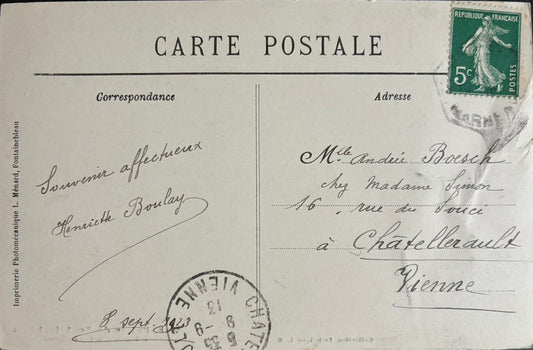 CARTE POSTALE
REPUBLIQUE FRANÇAISE
5c
POSTES
MARNE
Correspondance
Adresse
Souvenir affectueux
Henriette Boulay
8 sept. 1913
Mlle Andrée Boesch
chez Madame Simon
16, rue du Souci
à Châtellerault
Vienne
Imprimerie Photomécanique L. Ménard, Fontainebleau
VIENNE
CHATE
9 - 9
13